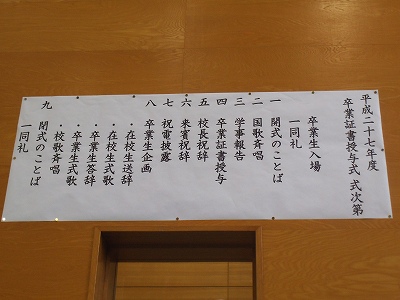 平成二十七年度
卒業証書授与式 式次第
卒業生入場
一同礼
一 開式のことば
二 国歌斉唱
三 学事報告
四 卒業証書授与
五 校長祝辞
六 来賓祝辞
七 祝電披露
八 卒業生企画
・在校生送辞
・在校生式歌
・卒業生答辞
・卒業生式歌
・校歌斉唱
九 閉式のことば
一同礼